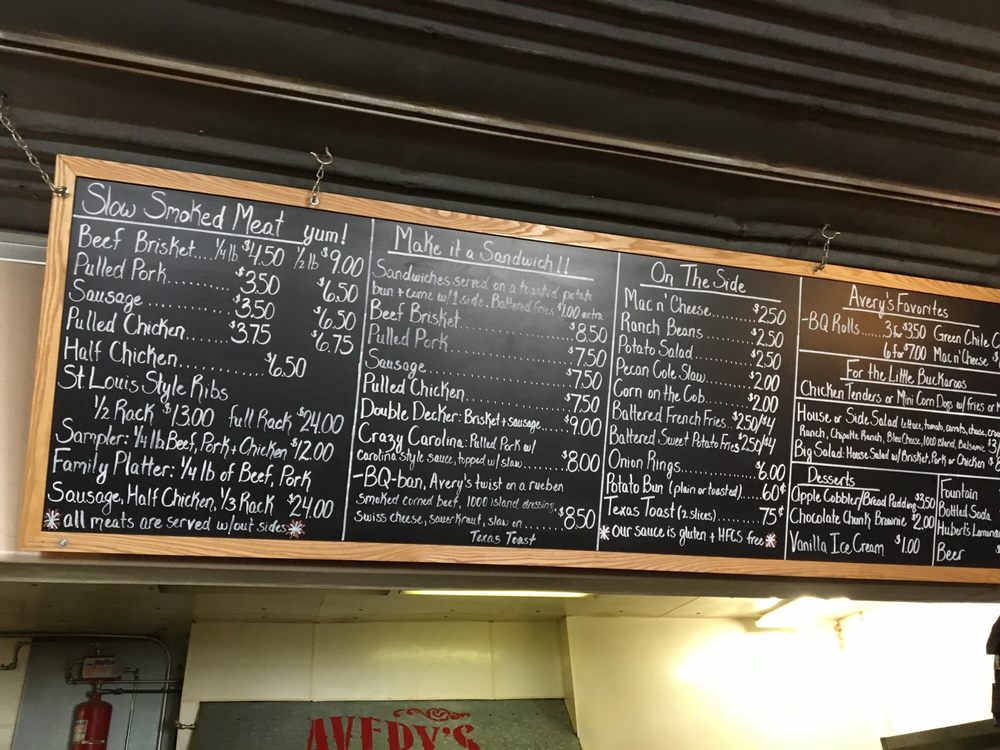 Slow Smoked Meat yum!
Beef Brisket.... 1/4 lb $4.50 1/2 lb $9.00
Pulled Pork............ $3.50 $6.50
Sausage............... $3.50 $6.50
Pulled Chicken...... $3.75 $6.75
Half Chicken.............. $6.50
St Louis Style Ribs
1/2 Rack $13.00 full Rack $24.00
Sampler: 1/4 lb Beef, Pork, + Chicken $12.00
Family Platter: 1/4 lb of Beef, Pork
Sausage, Half Chicken, 1/3 Rack $24.00
*all meats are served w/out sides*
Make it a Sandwich!!
Sandwiches served on a toasted potato
bun + come w/ 1 side. Battered fries $1.00 extra
Beef Brisket................ $8.50
Pulled Pork................. $7.50
Sausage.................... $7.50
Pulled Chicken............. $7.50
Double Decker: Brisket + sausage...... $9.00
Crazy Carolina: Pulled Pork w/
carolina style sauce, topped w/ slaw...... $8.00
-BQ-ban, Avery's twist on a rueben
smoked corned beef, 1000 island dressing,
Swiss cheese, sauerkraut, slaw on.... $8.50
Texas Toast
On The Side
Mac n' Cheese....... $2.50
Ranch Beans........ $2.50
Potato Salad........ $2.50
Pecan Cole Slaw...... $2.00
Corn on the Cob...... $2.00
Battered French Fries.. $2.50/$4
Battered Sweet Potato Fries $2.50/$4
Onion Rings............ $6.00
Potato Bun (plain or toasted).... 60¢
Texas Toast (2 slices)...... 75¢
*our sauce is gluten + HFCS free*
Avery's Favorites
-BQ Rolls..... 3 for $3.50 Green Chile
6 for $7.00 Mac n' Cheese $
For the Little Buckaroos
Chicken Tenders or Mini Corn Dogs w/ fries or
House or Side Salad lettuce, tomato, carrots, cheese,
Ranch, Chipotle Ranch, Bleu Cheese, 1000 Island, Balsamic
Big Salad: House Salad w/ Brisket, Pork or Chicken $
Desserts
Apple Cobbler/Bread Pudding $3.50
Chocolate Chunk Brownie $2.00
Vanilla Ice Cream $1.00
Fountain
Bottled Soda
Hubert's Lemonade
Beer
AVERY'S